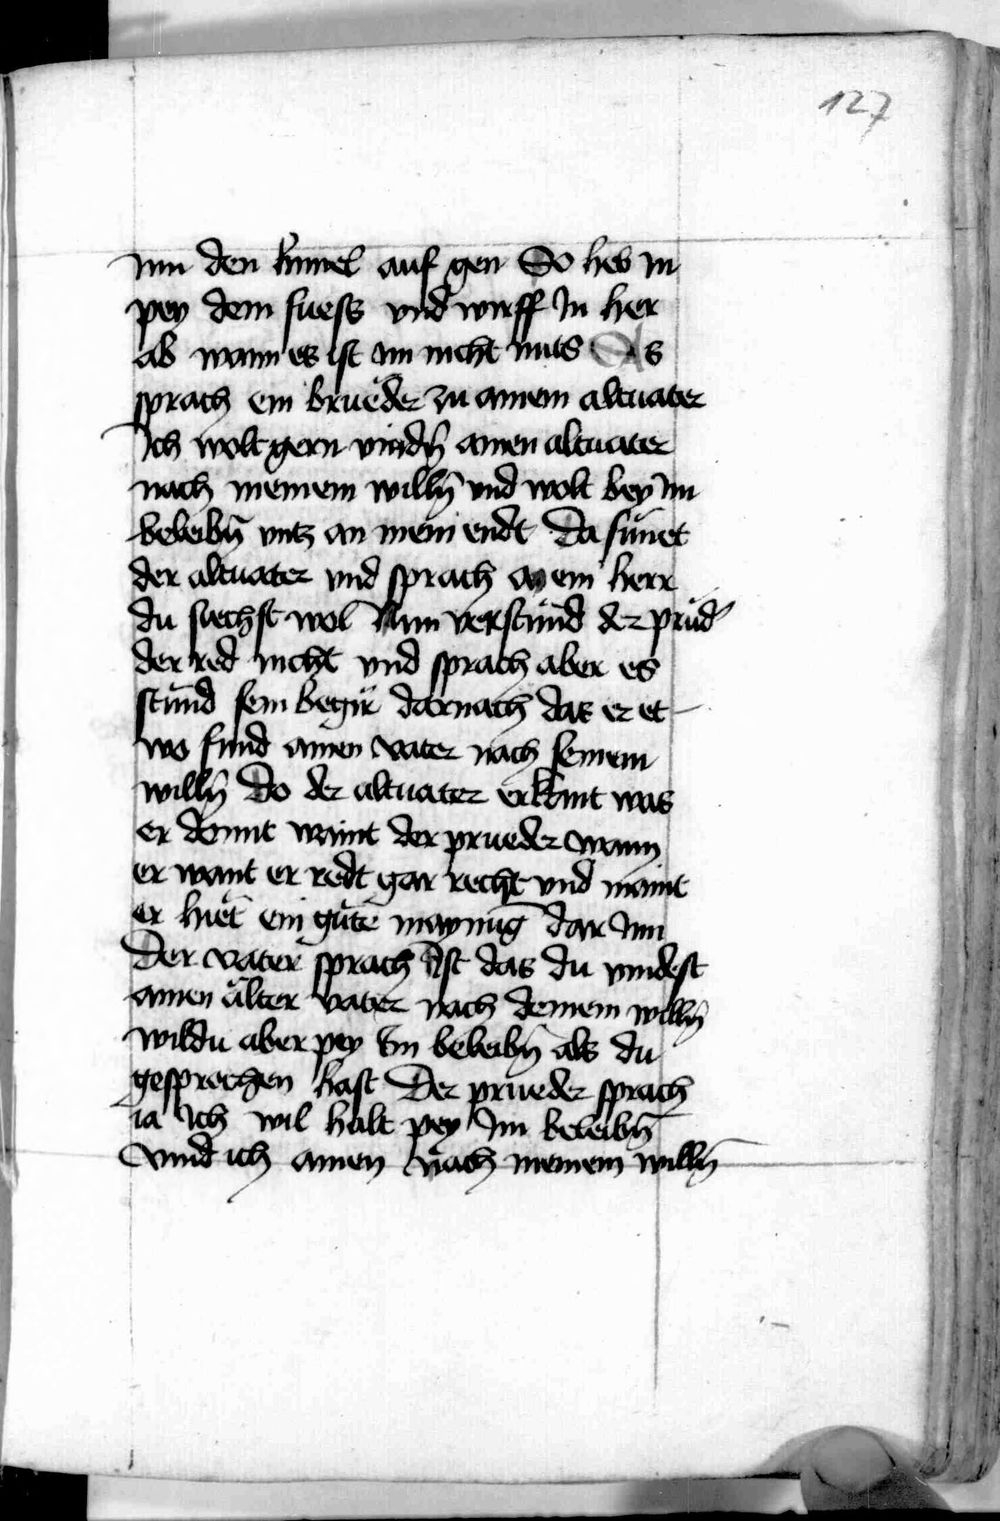 127
inn den himel auf gen So heb in
pey dem fuess vnd wirff Jn her
ab wann es ist im nicht nuts Es
sprach ein brueder zu ainem altuater
Ich wolt gern vindn̄ ainen altuater
nach meinem willn̄ vnd wolt bey Im
beleibn̄ vntz an mein endt Da
der altuater vnd sprach mein herr
du suechst wol Nun verstund der prud'
der red nicht vnd sprach aber es
stund sein begir darnach das er et-
wo fund ainen vater nach seinem
willn̄ Do der altuater erkant was
er waint der prueder wann
er want er redt gar recht vnd maint
er hiet ein gute maynūg dar Inn
Der vater sprach Ist das du vindest
ainen alter vater nach deinem willn̄
wildu aber pey Im beleibn̄ als du
gesprochen hast Der prueder sprach
ia Ich wil halt pey Im beleibn̄
vind ich ainen nach meinem willn̄